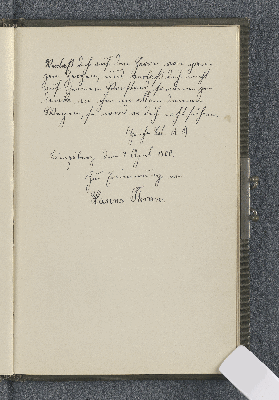 Verlaß dich auf den Herrn von gan-
zem Herzen, und verlaß dich nicht
auf deinen Verstand, sondern ge-
denke an ihn in allen deinen
Wegen, so wird er dich recht führen.
den 7. April
Zur Erinnerung an
Hanna